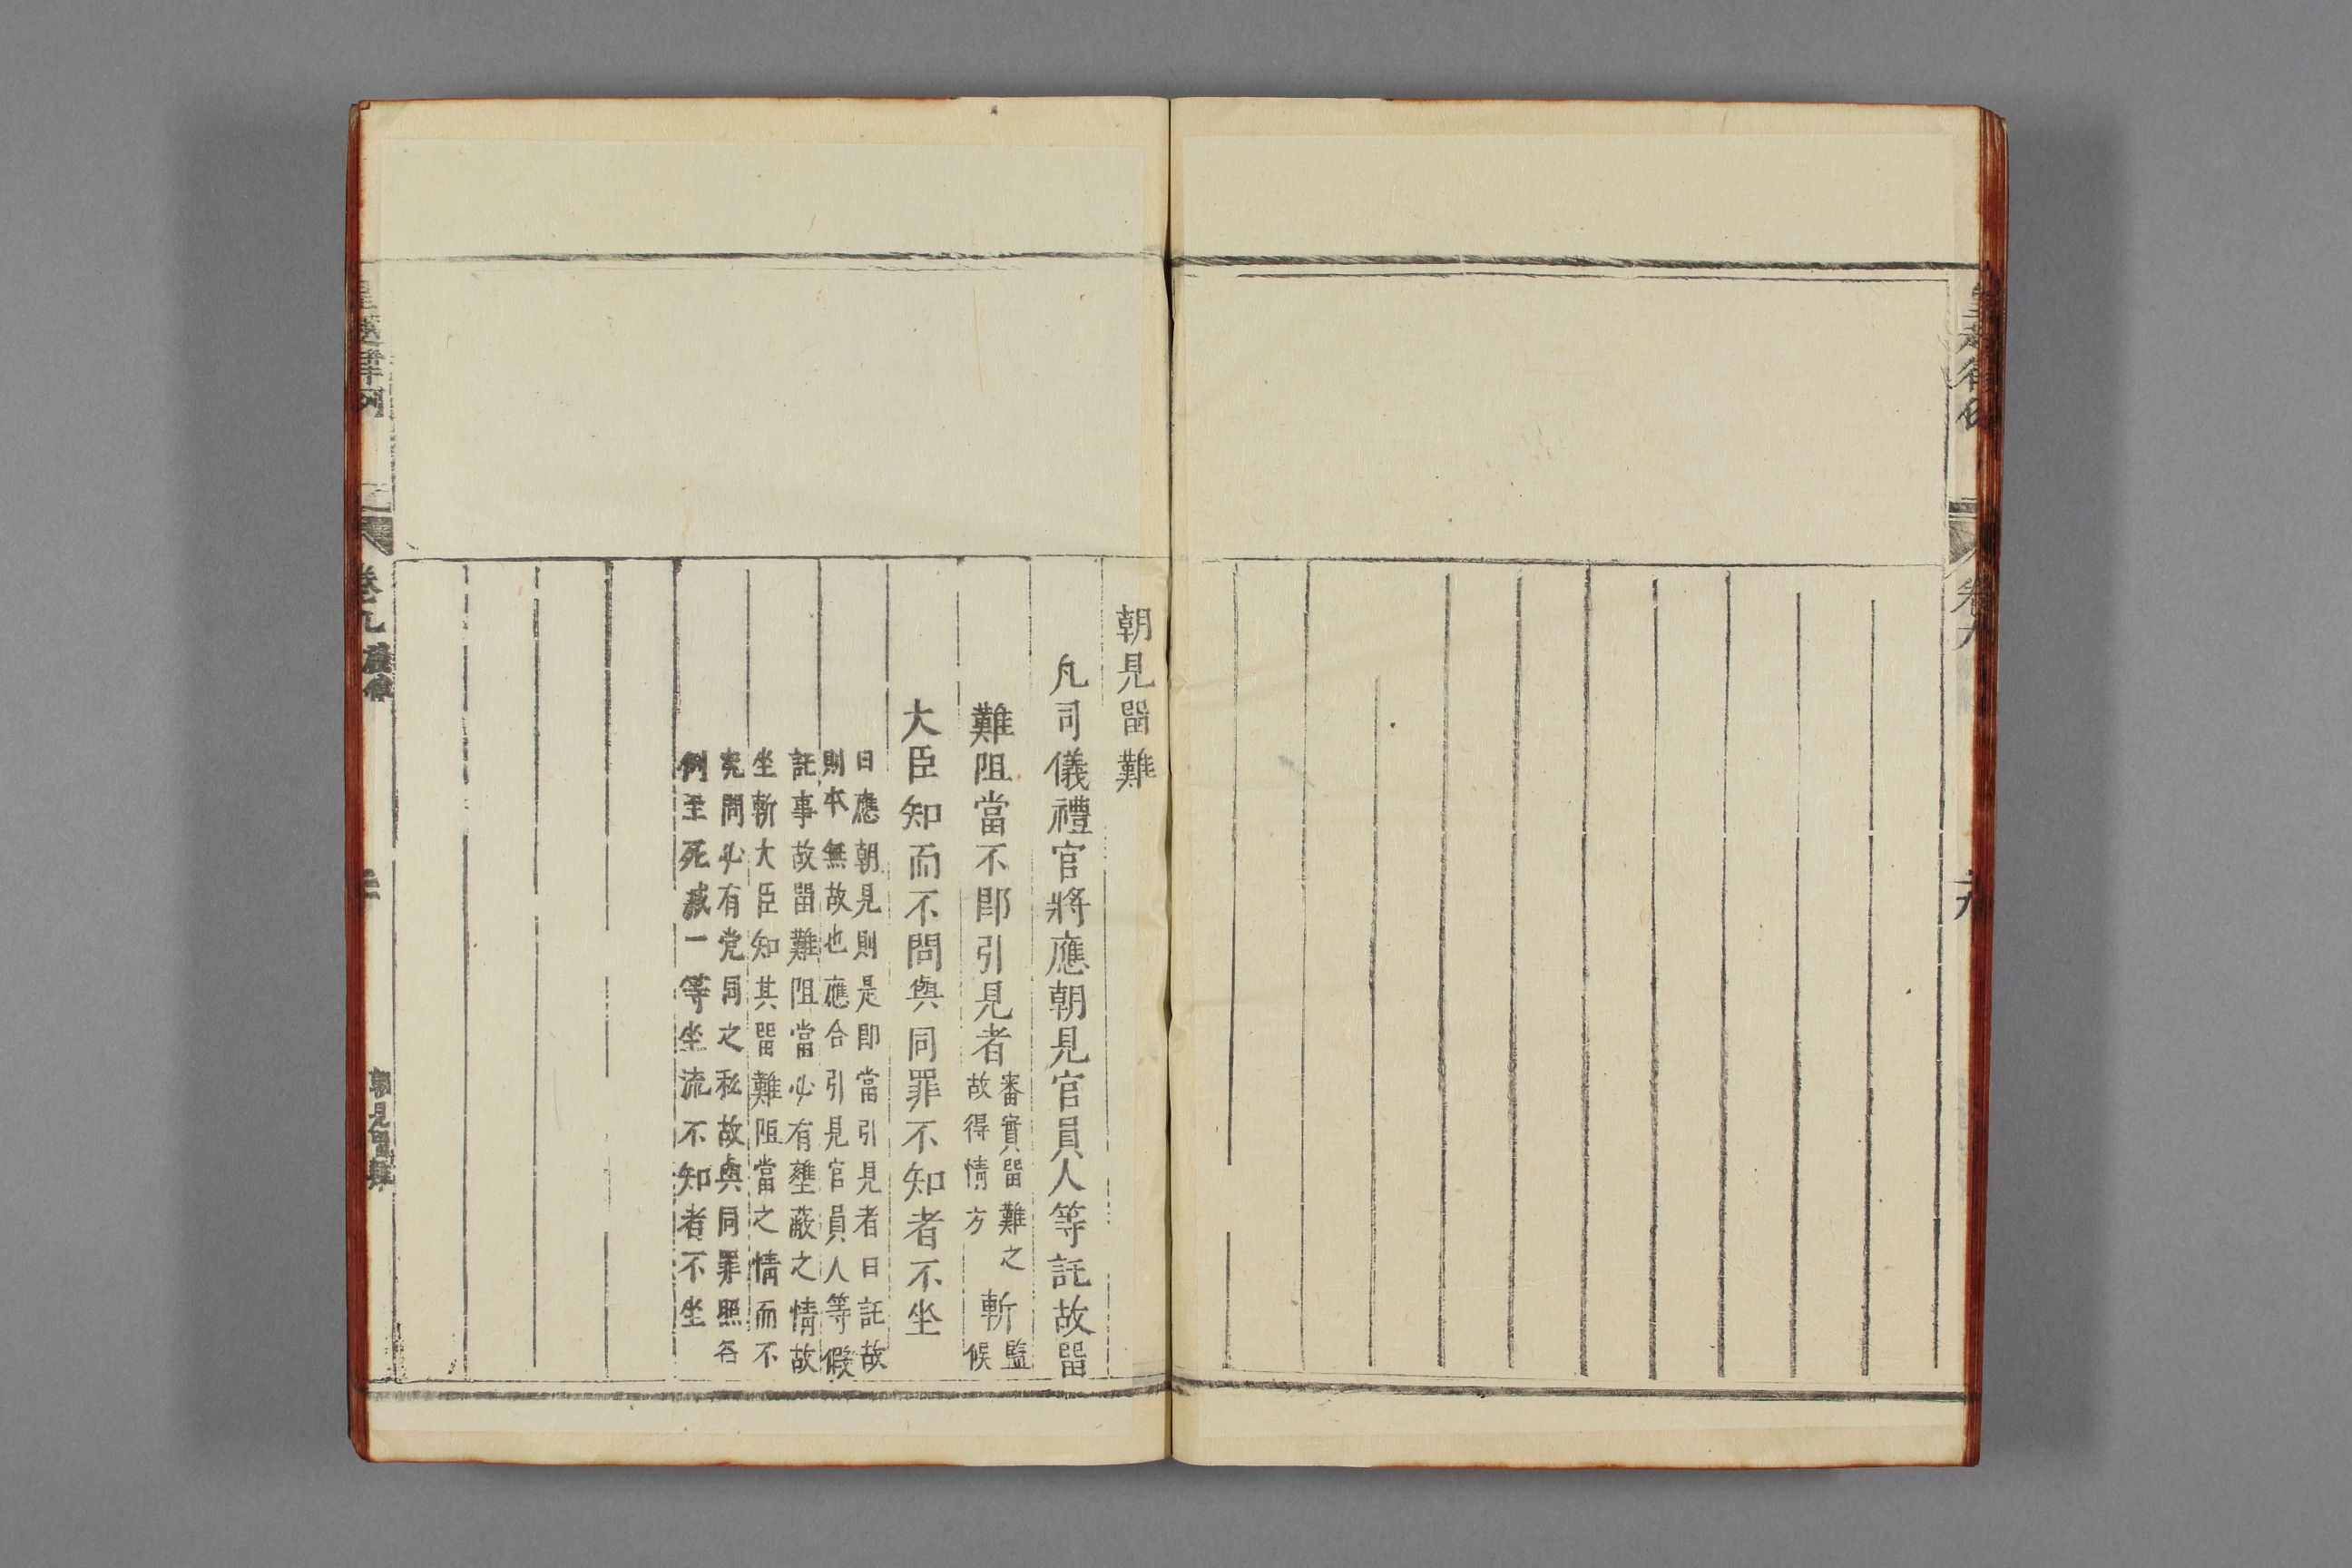 卷九
朝見畱難
凡司儀禮官將應朝見官員人等託故畱
難阻當不卽引見者審實畱難之故得情方斬監候
大臣知而不問與同罪不知者不坐
曰應朝見則是卽當引見者曰託故
則本無故也應合引見官員人等假
託事故畱難阻當必有壅蔽之情故
坐斬大臣知其畱難阻當之情而不
究問必有党同之私故與同罪照名
例至死減一等坐流不知者不坐
皇越律例
卷九
儀律
朝見畱難